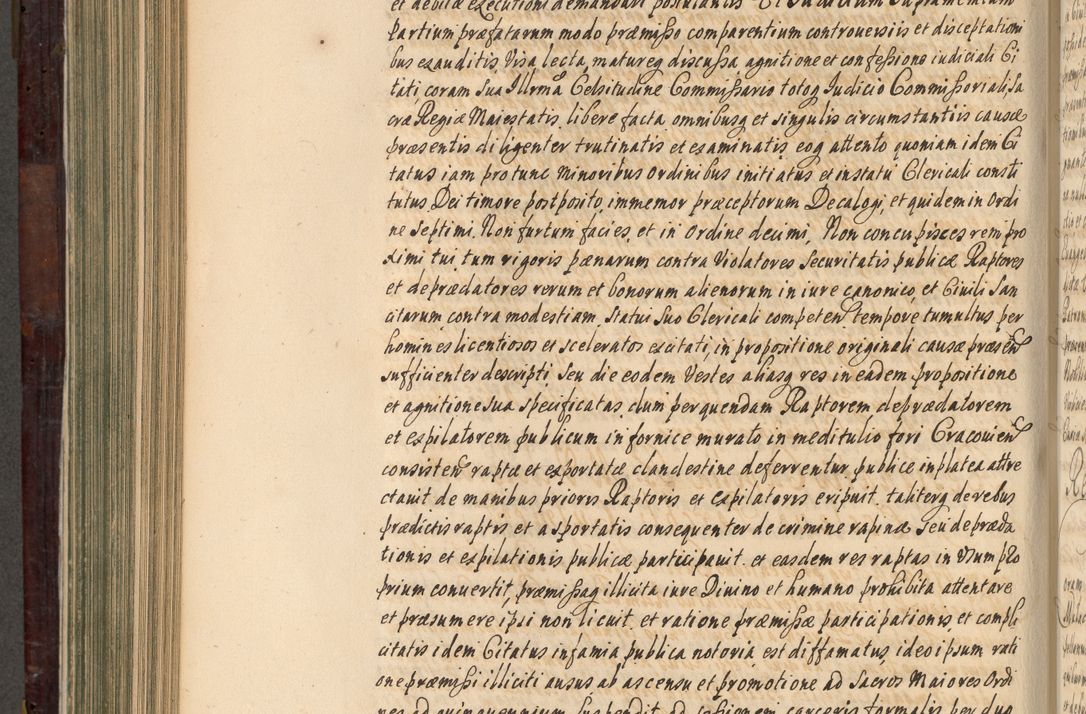 et debitæ executioni demandari postulantis
Partium præfatarum modo præmisso comparentium controversiis et disceptationi
bus exauditis, Visa, lecta, matureq discussa, agnitione et confessione iudiciali Ci
tati, coram Sua Illrma Celsitudine Commissario totoq Iudicio Commissoriali, Sa
cræ Regiæ Maiestatis, libere facta, omnibusq et singulis circumstantiis causæ
præsentis diligenter trutinatis et examinatis, eoq attento quoniam idem Ci
tatus iam pro tunc Minoribus Ordinibus initiatus et in statu Clericali consti
tutus Dei timore postposito, immemor præceptorum Decalogi, et quidem in Ordi
ne Septimi, Non furtum facies, et in Ordine decimi, Non concupisces rem pro
ximi tui, tum rigoris pænarum contra Violatores Securitatis publicæ Raptores
et deprædatores rerum et bonorum alienorum in iure canonico et Civili San
citarum, contra modestiam Statui Suo Clericali competen tempore tumultus per
homines licentiosos et sceleratos excitati, in propositione originali causæ præsen
sufficienter descripti, seu die eodem Vestes aliasq res in eadem propositione
et agnitione sua specificatas, dum per quendam Raptorem deprædatorem
et expilatorem publicum in fornice murato in meditulio fori Cracovien
consisten raptæ et exportatæ clandestine deferrentur, publice in platea attre
ctavit de manibus prioris Raptoris et expilatoris eripuit, taliterq de rebus
prædictis raptis et asportatis consequenter de crimine rapinæ seu depræda
tionis et expilationis publicæ participavit, et easdem res raptas in Usum pro
prium convertit, præmissaq illicita iure Divino et humano prohibita attentare
et præsumere ipsi non licuit, et ratione præmissæ participationis et compli
citatis idem Citatus infamia publica notoria est diffamatus, ideo ipsum rati
one præmissi illiciti ausus ab ascensu et promotione ad Sacros Maiores Ordi
nes ad quinquennium suspendit, ad carceris formalis per duo